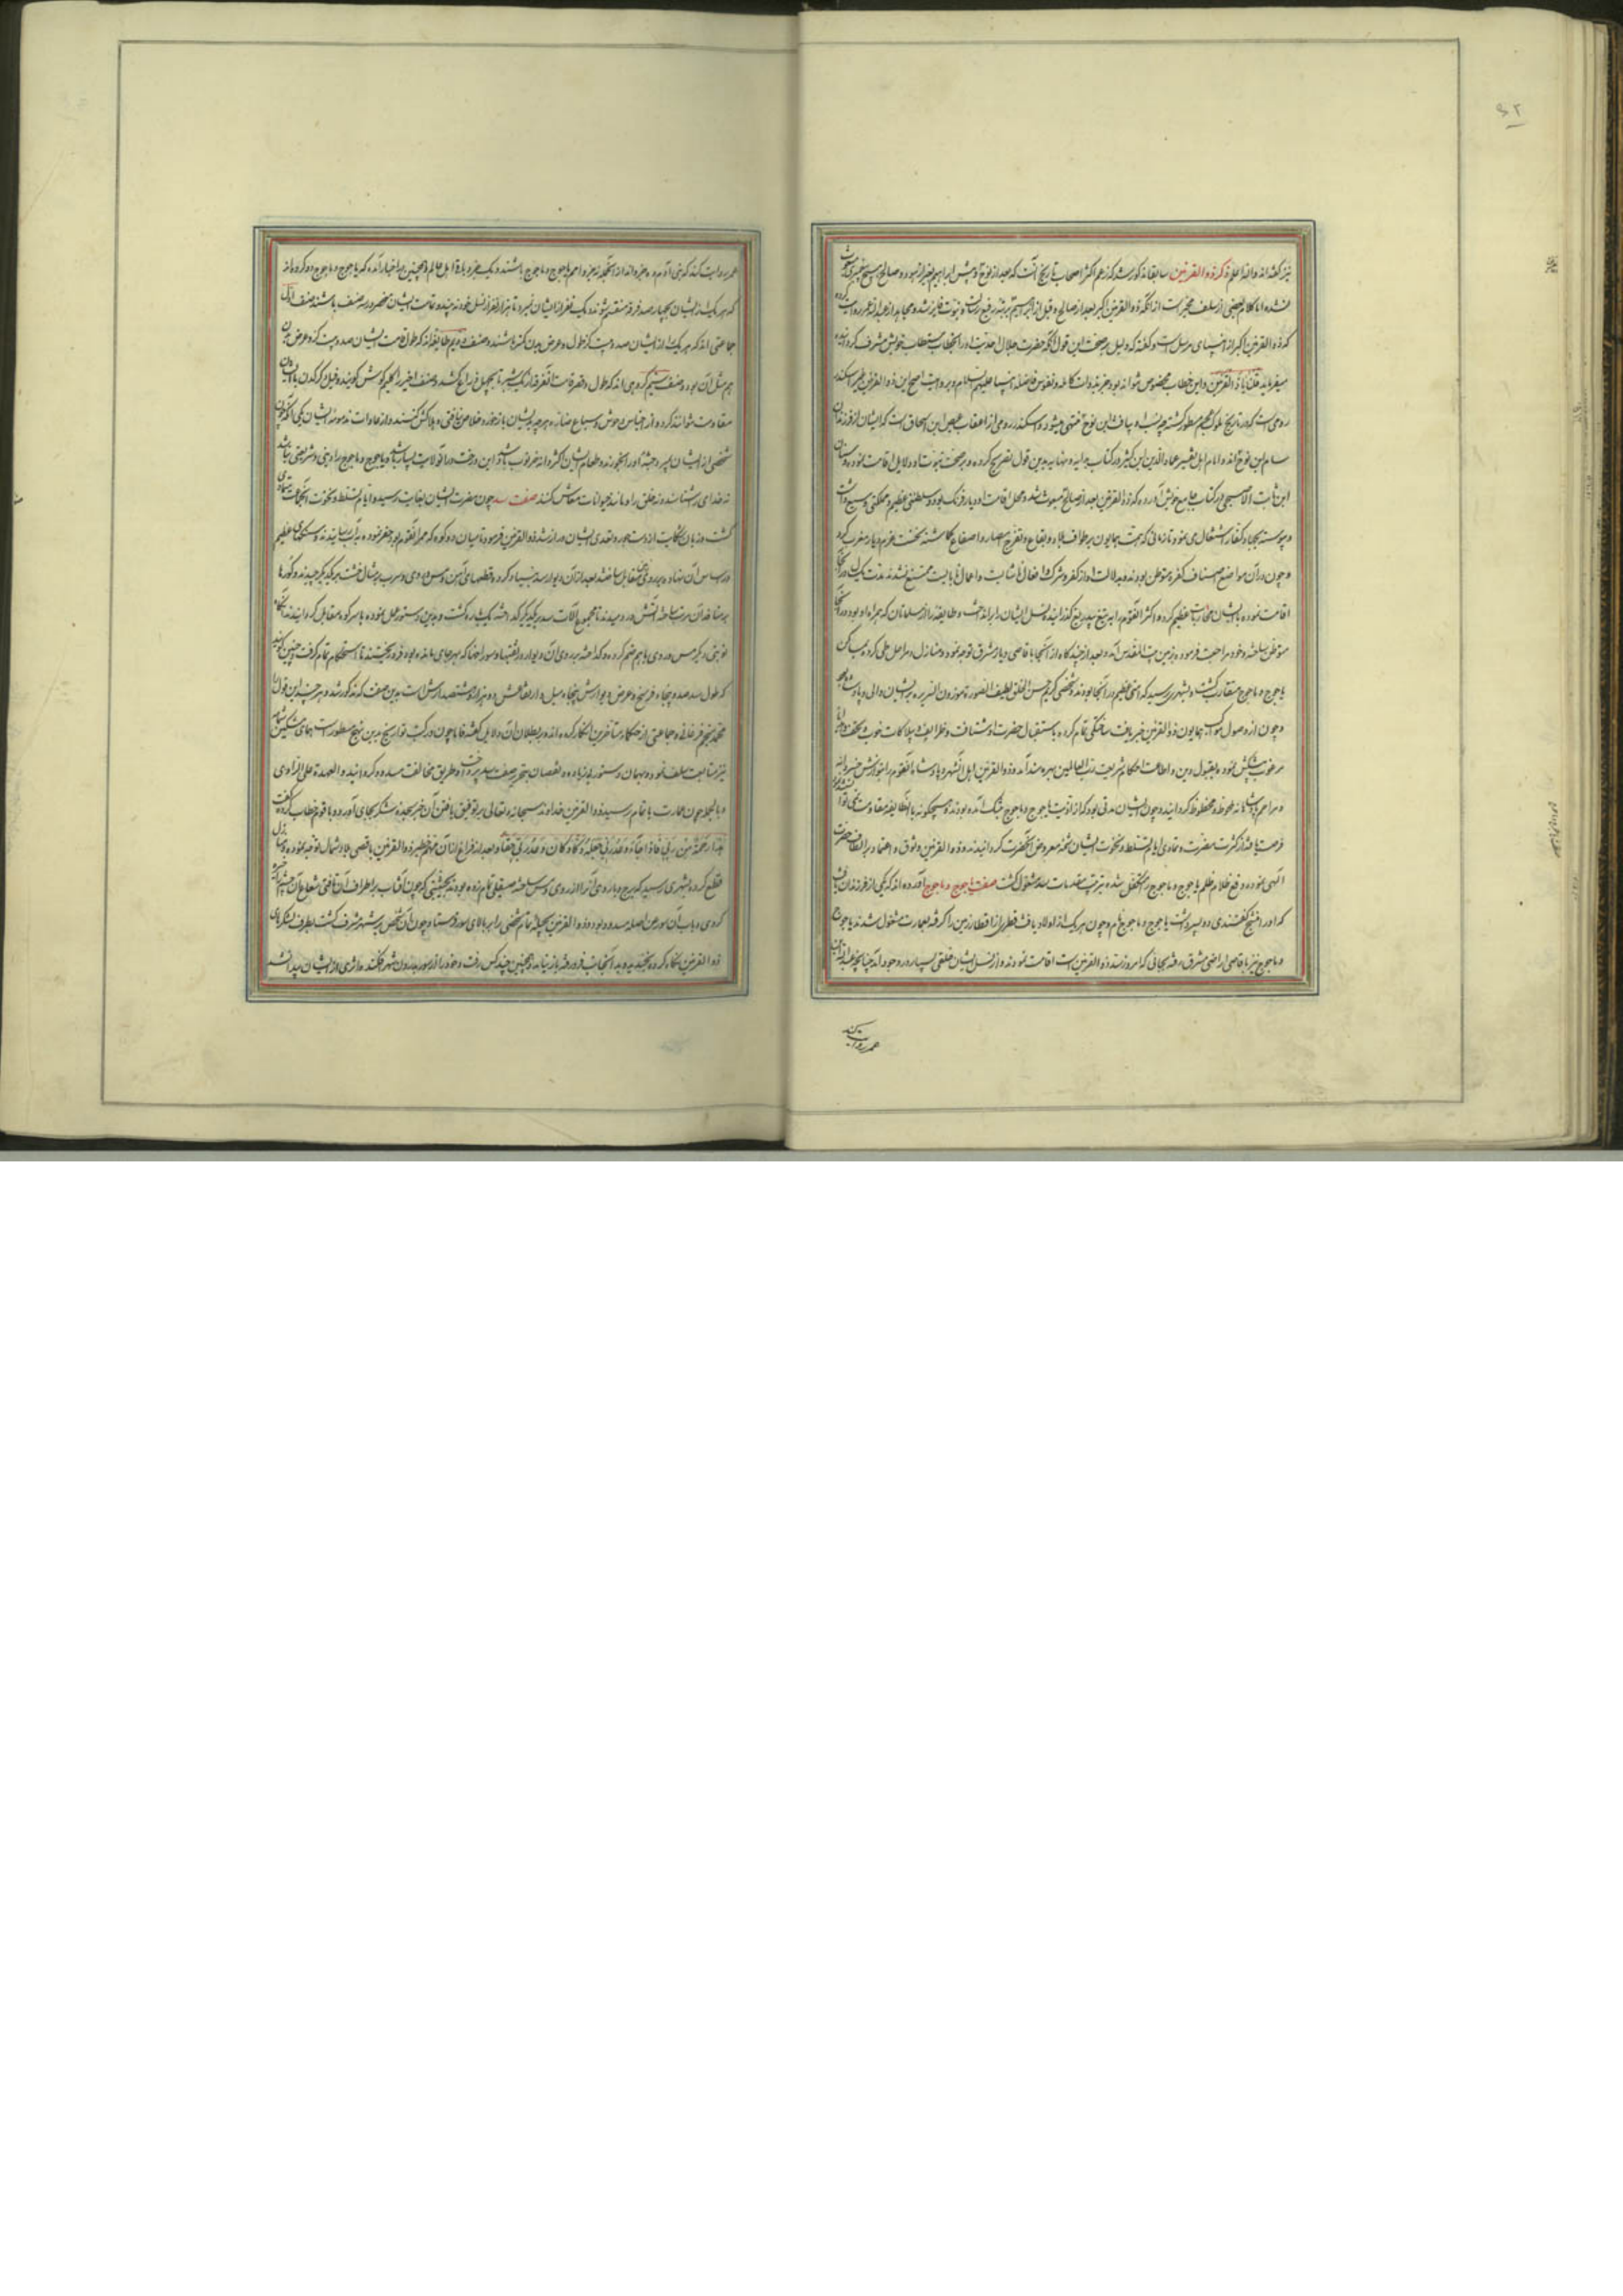 نیز گفته‌اند والله اعلم ذکر ذو القرنین سابقا مذکور شد که زعم اکثر اصحاب تاریخ آنست که بعد از نوح و پیش از ابراهیم بغیر از هود و صالح هیچ پیغمبری مبعوث
نشده اما کلام بعضی از سلف مخبر است از آنکه ذو القرنین اکبر بعد از صالح و قبل از ابراهیم بمرتبه رفیع رسالت و نبوت فایز شده و مجاهد از عبدالله عمر روایت کرده
که ذو القرنین اکبر از انبیای مرسل است و گفته که دلیل بر صحت این قول آنکه حضرت جلال احدیت او را بخطاب مستطاب خویش مشرف گردانیده
میفرماید قلنا یا ذا القرنین و این خطاب مخصوص تواند بود و بذوات کامله و نفوس فاضله انبیا علیهم السلام و بروایت اصح این ذو القرنین غیر اسکندر
رومی است که در تاریخ ملوک عجم مسطور گشته چه نسب او بیافث ابن نوح منتهی میشود و اسکندر رومی از اعقاب عیص ابن اسحاق است که ایشان از فرزندان
سام ابن نوح اند و امام اهل تفسیر عماد الدین ابن کثیر در کتاب بدایه و نهایه بدین قول تصریح کرده و بر صحت نبوت او دلایل اقامت نموده و سنان
ابن ثابت الاصبحی در کتاب جامع خویش آورده که ذو القرنین بعد از صالح مبعوث شد و محل اقامت او دیار فرنک بود و سلطنتی عظیم و مملکتی وسیع داشت
و پیوسته بجهاد کفار اشتغال می نمود تا زمانی که همت همایون بر طواف بلاد و بقاع و تفرج امصار و اصقاع گماشته نخست عزم دیار مغرب کرد
و چون در آن مواضع اصناف کفره متوطن بودند و بدلالت او از کفر و شرک و افعال ناشایست و اعمال نابایست ممتنع نشدند مدت یک سال در آنجا
اقامت نموده با ایشان محاربات عظیم کرده اکثر القوم را به تیغ بیدریغ گذرانیده نسل ایشان را برانداخت و طایفه را از مسلمانان که همراه او بودند در آنجا
متوطن ساخته و خود مراجعت فرموده بزمین بیت المقدس آمد و بعد از چند گاه از آنجا باقاصی دیار مشرق توجه نمود و منازل و مراحل طی کرده بمساکن
یاجوج و ماجوج متقارب گشت و بشهری رسید که امتی عظیم در آنجا بودند و شخصی کریم حسن الخلق لطیف الصورة موزون السریره بر ایشان والی و پادشاه بود
و چون از وصول موکب همایون ذو القرنین خبر یافت ساختگی تمام کرده باستقبال حضرت او شتافت و ظرایف و تبرکات خوب و تحف
مرغوب پیشکش نموده بقبول دین و اطاعت احکام شریعت رب العالمین بهره مند آمد و ذو القرنین اهل آن شهر و پادشاه آنقوم را بنوازش خسروانه
و مراحم پادشاهانه محظوظ و محفوظ گردانید و چون ایشان مدتی بود که از اذیت یاجوج و ماجوج بتنک آمده بودند و بهیچگونه با آنطایفه مقاومت نمی توانستند
فرصت یافته از کثرت مضرت و تمادی ایام تسلط و نخوت ایشان شمه معروض آنحضرت گردانیدند و ذو القرنین وثوق و اعتماد بر الطاف حضرت
الهی نموده دفع ظلام ظلم یاجوج و ماجوج را متکفل شده بترتیب مقدمات سد مشغول گشت صفت یاجوج و ماجوج آورده‌اند که یکی از فرزندان یافث
که او را منسج گفتندی دو پسر داشت یاجوج و ماجوج نام و چون هر یک از اولاد یافث قطری از اقطار زمین را گرفته بعمارت مشغول شدند یاجوج
و ماجوج نیز باقاصی اراضی مشرق رفته بجائی که امروز سد ذو القرنین است اقامت نمودند و از نسل ایشان خلقی بسیار در وجود آمد چنانچه عبدالله ابن
عمر روایت کند
عمر روایت کند که بنی آدم ده جزواند از آنجمله نه جزو امم یاجوج و ماجوج باشند و یک جزو باقی اهل عالم و همچنین در اخبار آمده که یاجوج و ماجوج دو گروه‌اند
که هر یک از ایشان بچهار صد فرقه منقسم شوند و یک نفر از ایشان نمیرد تا هزار نفر از نسل خود نه بیند و قامت ایشان منحصر در سه صنف باشند صنف اول
جماعتی اند که هر یک از ایشان صد و بیست گز طول و عرض بدن کمتر باشند و صنف دویم طایفه اند که طول قامت ایشان صد و بیست گز و عرض بدن
هم مثل آن بود و صنف سیم گروهی اند که طول و قصر قامت آنفرقه از یک شبر تا بچهل ذراع کشد و صنف اخیر را گلیم گوش گویند و فیل و کرکدن با ایشان
مقاومت نتوانند کرد و از اجناس وحوش و سباع ضاره هر چه بدیشان باز خورد خلاص نیافتی و هلاکش کنند و از عادات مذمومه ایشان یکی آنکه چون
شخصی از ایشان بمیرد جثه او را بخورند و طعام ایشان اکثر دانه خرنوب باشد و یاجوج و ماجوج را دینی و شریعتی نباشد
نه خدای را شناسند و نه خلق را و مانند حیوانات معاش کنند صفت سد چون مضرت ایشان بغایت رسیده و ایام تسلط و نخوت آنجماعت متمادی
گشت و زبان شکایت از دست جور و تعدی ایشان دراز شد ذو القرنین فرمود تا میان دو کوه که ممر آنقوم بود حفر نموده به آب رسانیدند و سنگهای عظیم
در اساس آن نهاده بعد از آن دیوار سد بنیاد کرد و قطعهای آهن و مس و روی و سرب بر مثال خشت بر یکدیگر چیدند و کورها
بر منافذ آن مرتب ساخته آتش در دمیدند تا مجموع آلات سد بر یکدیگر گداخته یکپاره گشت و بدین دستور عمل نموده با سر کوه مقابل گردانیدند آنگاه
نوبتی دیگر مس و روی با هم ضم کرده و گداخته بر روی آن دیوار و ثقبها و سوراخها که بهر جای مانده بود فرو ریختند تا استحکام تمام گرفت و چنین گویند
که طول سد صد و پنجاه فرسخ و عرض دیوارش پنجاه میل و ارتفاعش دو هزار و ششصد ارش است بدین صفت که مذکور شد و هر چند این قول را
محمد منجم فرغانی و جماعتی از حکماء متأخرین انکار کرده‌اند و بر بطلان آن دلایل گفته فاما چون در کتب تواریخ بدین نهج مسطور است
نیز متابعت سلف نموده و بهمان دستور بی زیاده و نقصان بتحریر صفت سد پرداخت و طریق مخالفت مسدود گردانید و العهدة علی الراوی
و بالجمله چون عمارت باتمام رسید ذو القرنین خداوند سبحانه و تعالی بر توفیق یافتن آن خیر سجده شکر بجای آورده و با قوم خطاب کرد و گفت
هذا رحمة من ربی فاذا جاء وعد ربی جعله دکا و کان وعد ربی حقا و بعد از فراغ از آن مهم خطیر ذو القرنین باقصی بلاد شمال توجه نموده و منازل
قطع کرده بشهری رسید که برج و باروی آنرا از روی و مس ساخته صیقلی تمام زده بودند بحیثیتی که چون آفتاب بر اطراف آن تافتی شعاع آن چشم را خیره
کردی و باب آن سور من اصله مسدود بود و ذو القرنین بحیله تمام شخصی را بر بالای سور فرستاد و چون آن شخص بر شهر مشرف گشت بطرف لشکریان
ذو القرنین نگاه کرده بخندید و به آنجانب فرو رفته باز نیامد و همچنین چند کس رفت و خود را از سور بدرون شهر افکند و اثری از ایشان پیدا نشد